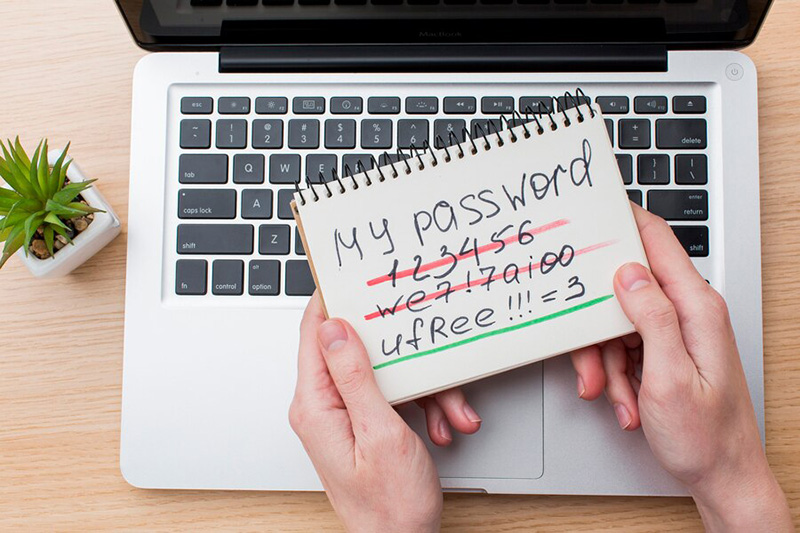 MacBook
esc
~ ! 1 @ 2 # 3 $ 4 % 5 ^ 6 + = delete
tab Q W E } ] | \
caps lock A enter return
shift Z shift
fn control option
My password
123456
we7!7aioo
ufRee!!!=3